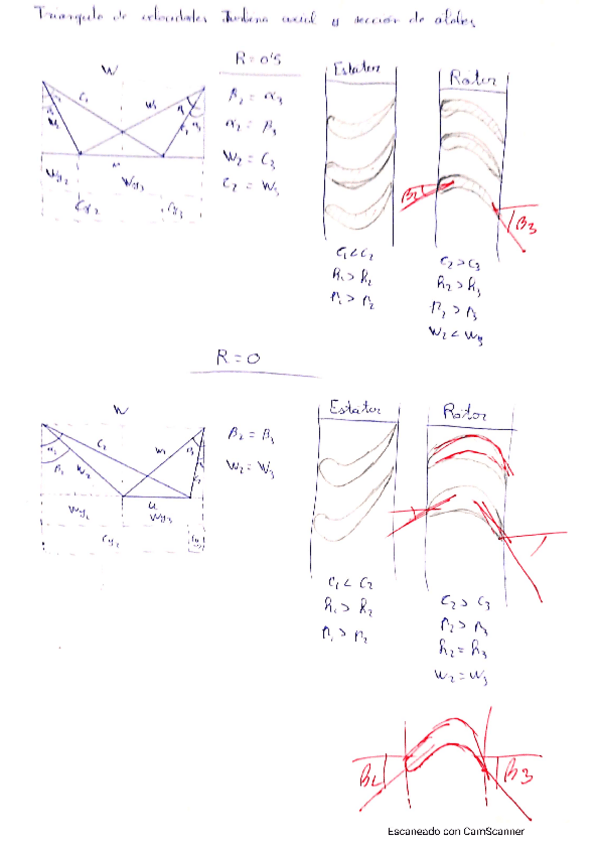 Triangulo de velocidades Turbina axial y sección de alabes
R = 0'5
W
β₂ = α₃
α₂ = β₃
W₂ = C₃
C₂ = W₃
C₂
W₃
W₂
u
Wy₂
Wy₃
Cy₂
Cy₃
Estator
Rotor
β₂
β₃
C₁ < C₂
h₁ > h₂
P₁ > P₂
C₂ > C₃
h₂ > h₃
P₂ > P₃
W₂ < W₃
R = 0
W
β₂ = β₃
W₂ = W₃
C₂
W₃
α₂
β₂
W₂
u
Wy₂
Wy₃
Cy₂
Estator
Rotor
C₁ < C₂
h₁ > h₂
P₁ > P₂
C₂ > C₃
P₂ > P₃
h₂ = h₃
W₂ = W₃
β₂
β₃
Escaneado con CamScanner